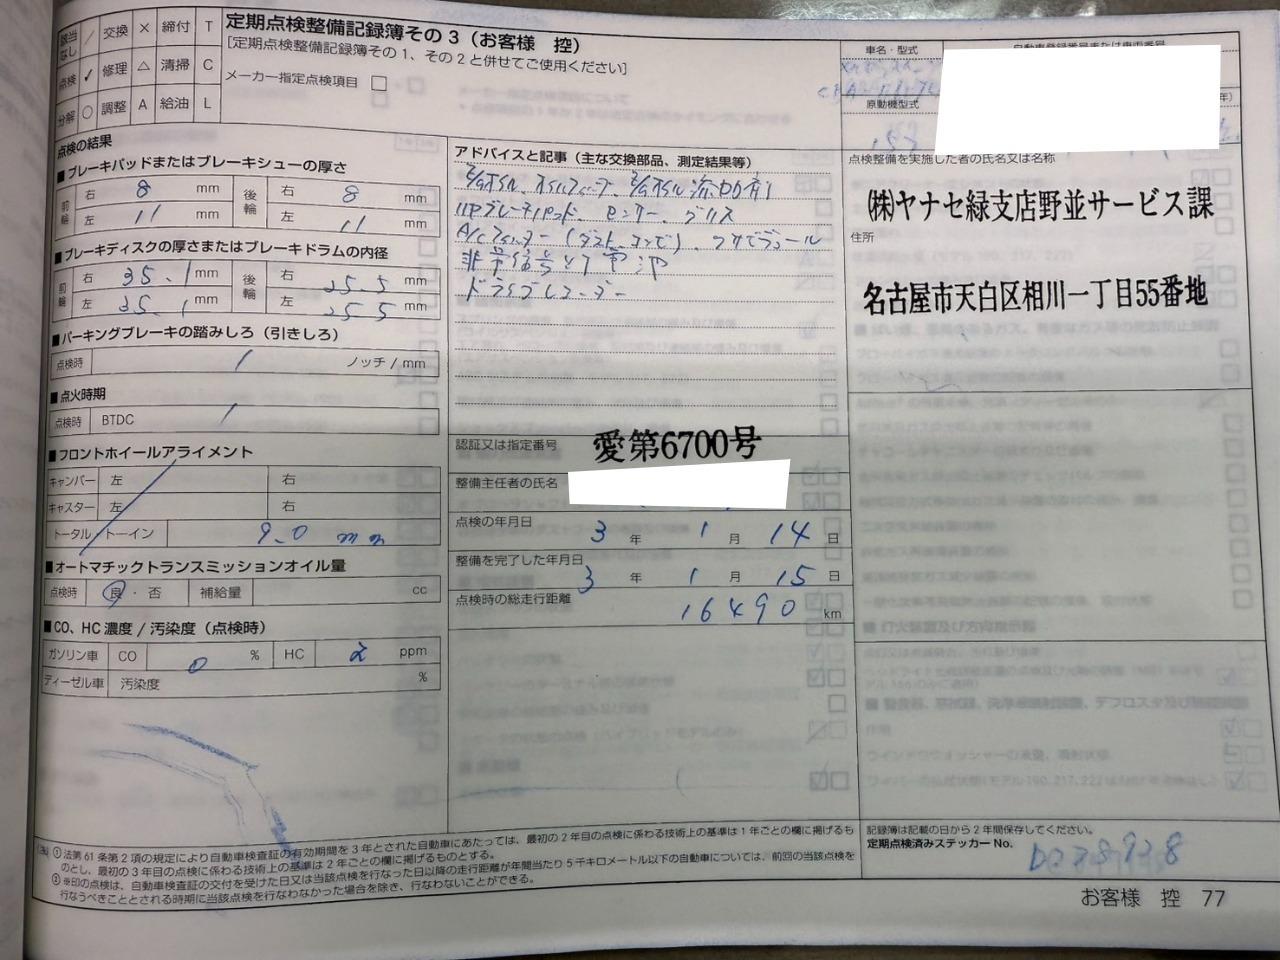 該当なし / 交換 × 締付 T
点検 ✓ 修理 △ 清掃 C
分解 ○ 調整 A 給油 L
定期点検整備記録簿その3（お客様 控）
[定期点検整備記録簿その1、その2と併せてご使用ください]
メーカー指定点検項目 □
点検の結果
■ブレーキパッドまたはブレーキシューの厚さ
前輪 右 8 mm 後輪 右 8 mm
左 11 mm 左 11 mm
■ブレーキディスクの厚さまたはブレーキドラムの内径
前輪 右 35.1 mm 後輪 右 25.5 mm
左 35.1 mm 左 25.5 mm
■パーキングブレーキの踏みしろ（引きしろ）
点検時 / ノッチ / mm
■点火時期
点検時 BTDC /
■フロントホイールアライメント
キャンバー 左 右
キャスター 左 右
トータル/トーイン 9.0 mm
■オートマチックトランスミッションオイル量
点検時 良・否 補給量 cc
■CO、HC濃度/汚染度（点検時）
ガソリン車 CO 0 % HC 2 ppm
ディーゼル車 汚染度 %
アドバイスと記事（主な交換部品、測定結果等）
E/Gオイル、オイルフィルター、E/Gオイル添加剤
ブレーキパッド、センサー、グリス
A/Cフィルター（ダスト、コンビ）
非常信号灯 電池
ドライブレコーダー
認証又は指定番号 愛第6700号
整備主任者の氏名
点検の年月日 3 年 1 月 14 日
整備を完了した年月日 3 年 1 月 15 日
点検時の総走行距離 16490 km
車名・型式
自動車登録番号または車両番号
原動機型式
年）
点検整備を実施した者の氏名又は名称
㈱ヤナセ緑支店野並サービス課
住所
名古屋市天白区相川一丁目55番地
(注) ①法第61条第2項の規定により自動車検査証の有効期間を3年とされた自動車にあたっては、最初の2年目の点検に係わる技術上の基準は1年ごとの欄に掲げるも
のとし、最初の3年目の点検に係わる技術上の基準は2年ごとの欄に掲げるものとする。
②※印の点検は、自動車検査証の交付を受けた日又は当該点検を行なった日以降の走行距離が年間当たり5千キロメートル以下の自動車については、前回の当該点検を
行なうべきこととされる時期に当該点検を行なわなかった場合を除き、行なわないことができる。
記録簿は記載の日から2年間保存してください。
定期点検済みステッカーNo.
お客様 控 77